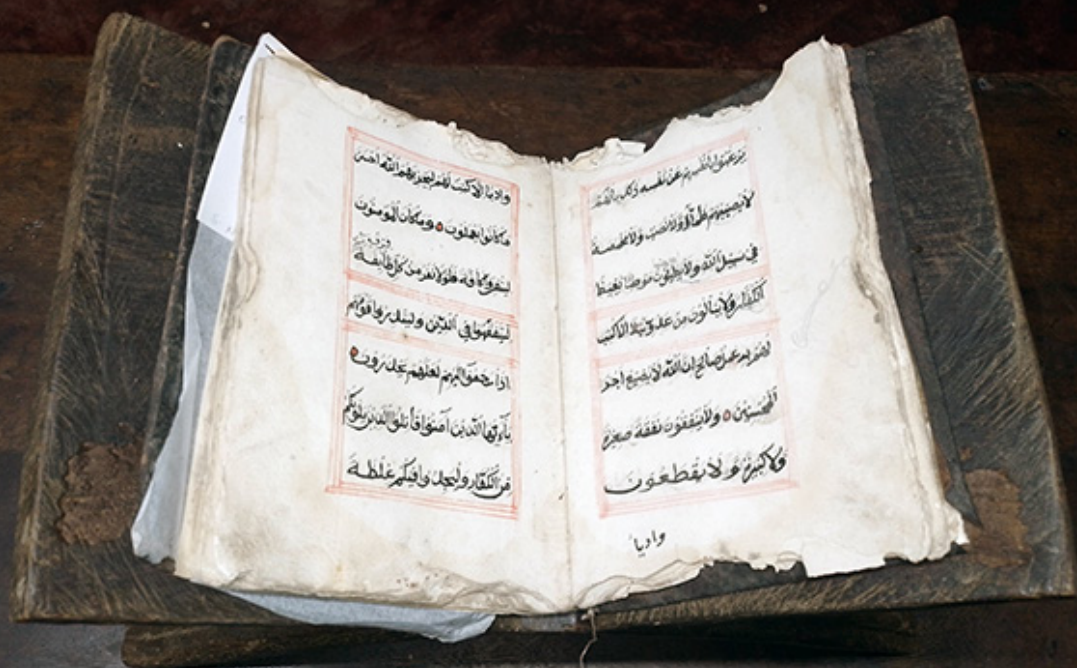 يرغبوا بانفسهم عن نفسه ذلك بانهم
لا يصيبهم ظمأ ولا نصب ولا مخمصة
في سبيل الله ولا يطئون موطئا يغيظ
الكفار ولا ينالون من عدو نيلا الا كتب
لهم به عمل صالح ان الله لا يضيع اجر
المحسنين ولا ينفقون نفقة صغيرة
ولا كبيرة ولا يقطعون
واديا
واديا الا كتب لهم ليجزيهم الله احسن
ما كانوا يعملون وما كان المؤمنون
لينفروا كافة فلولا نفر من كل طايفة
ليتفقهوا في الدين ولينذروا قومهم
اذا رجعوا اليهم لعلهم يحذرون
يآءيها الذين آمنوا قاتلوا الذين يلونكم
من الكفار وليجدوا فيكم غلظة